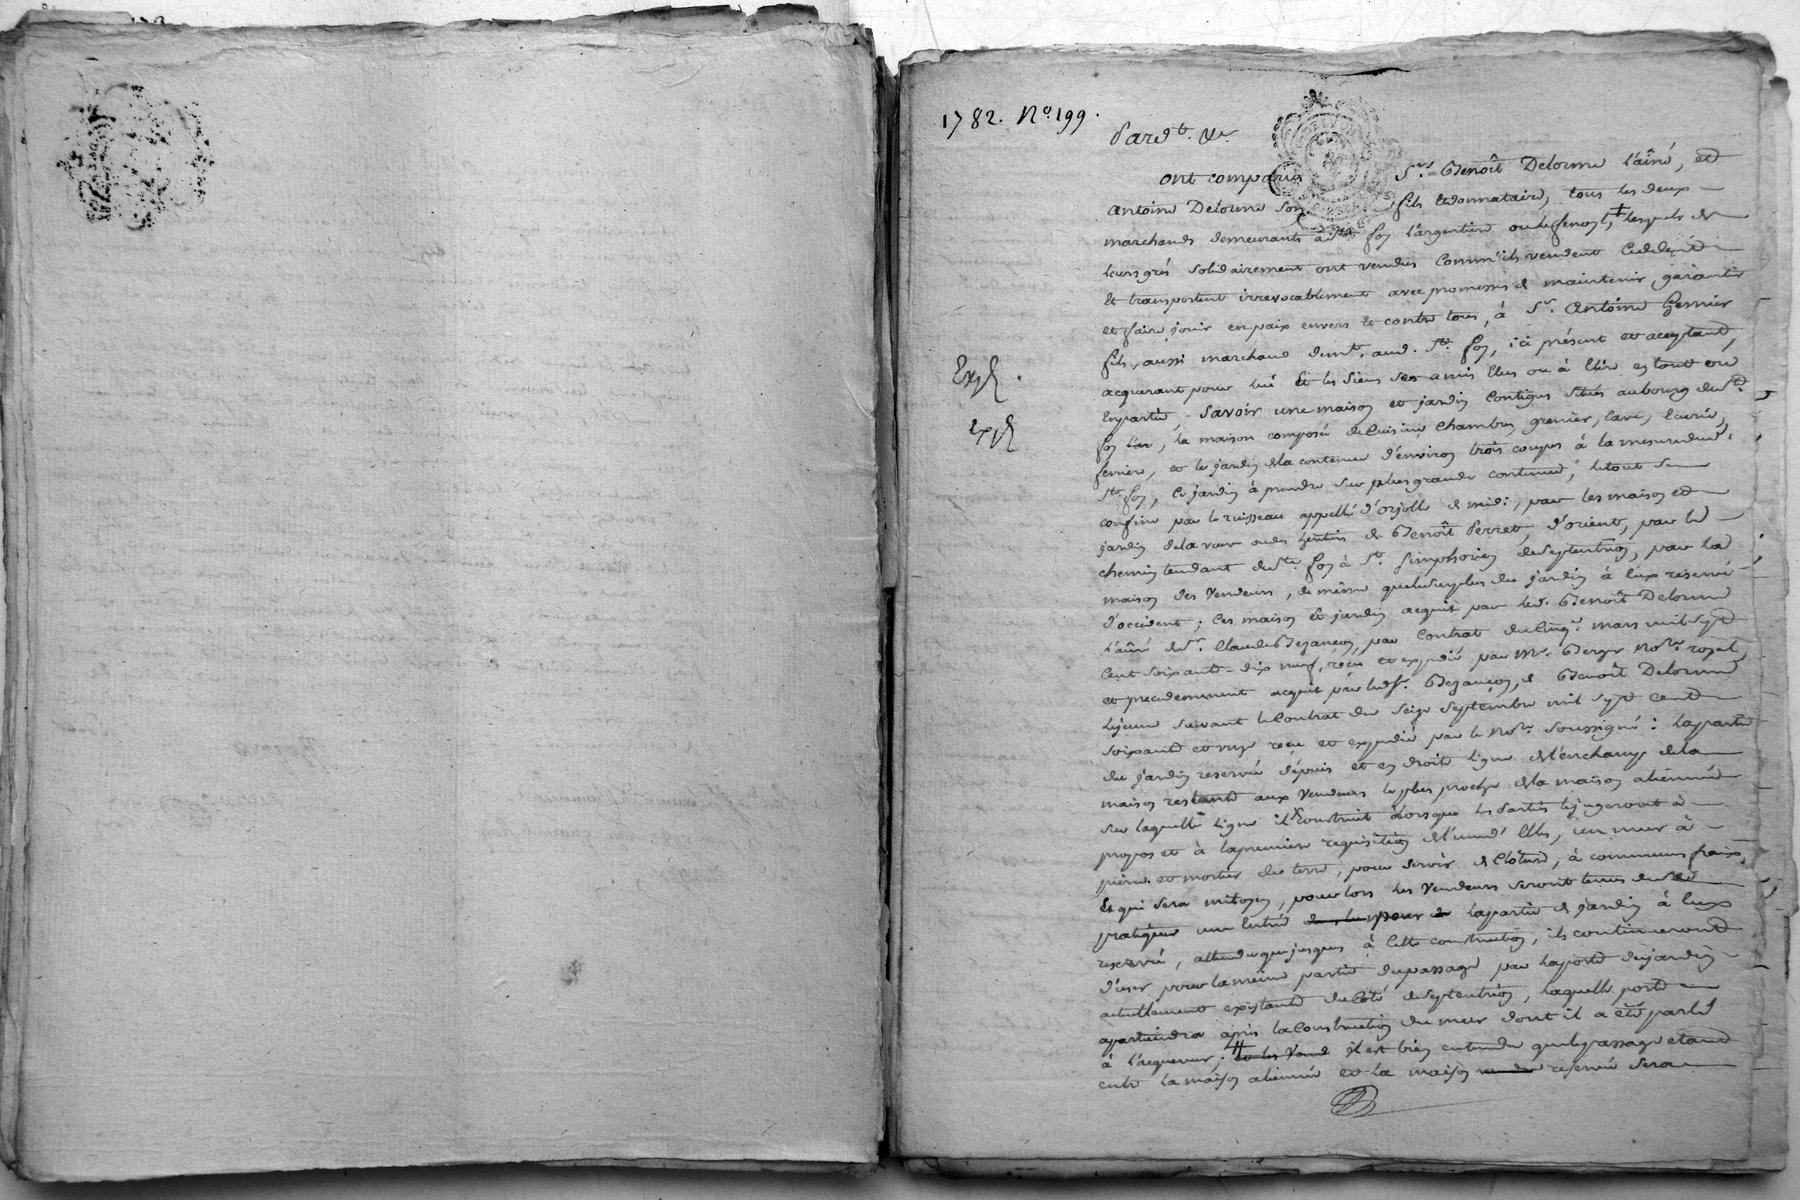 1782. No. 199.
Pard.t &a.
ont comparus Srs. Benoît Delorme L'aîné, et
antoine Delorme son fils Et donnataire, tous les deux
marchands demeurants à Ste foy L'argentiere ‡ Lesquels de
Leurs grés solidairement ont vendus Comm'ils vendent Cedde
Et transportent irrevocablement avec promesses de maintenir, garantir
et faire jouir en paix envers Et contre tous, à Sr. Antoine
fils, aussi marchand demt. aud. Ste. foy, ici présent et acceptant,
acquerant pour lui Et les siens ses amis Elus ou à Elire en tout ou
En partie, Savoir une maison et jardin Contigus Situés au bourg dud. Ste.
foy L'ar, La maison composée de Cuisine Chambres, grenier, Cave, Ecurie,
feniere, et le jardin de la contenue d'environ trois coupes à la mesure dud.
Ste. foy, Ce jardin à prendre sur plus grande contenue, Le tout se
confine par le ruisseau appellé d'orjolle de midi, par les maison et
jardin de la veuve ou des heritiers de Benoît Perret, d'orient, par le
chemin tendant de Ste. foy à St. Simphorien de Septentrion, par La
maison des Vendeurs, de même que le surplus du jardin à Eux reservé
d'occident; Ces maison Et jardin acquis par led. Benoît Delorme
L'aîné de Sr. Claude Bezançon, par Contrat du Cinq mars mil Sept
Cent Soixante-dix neuf, reçu et expedié par Me. Notre. royal,
et precedemment acquis par led. Sr. Bezançon, de Benoît Delorme
Le jeune suivant le Contrat du Seize Septembre mil Sept Cent
Soixante et onze reçu et expedié par le Nore. Soussigné: La partie
du jardin reservée depuis et en droite Ligne de la
maison restante aux Vendeurs Le plus proche de la maison alienée
Sur laquelle Ligne il Construit Lorsque les parties Le jugeront à
propos et à La premiere requisition de L'une d'Elles, un mur à
pierre et mortier de terre, pour Servir de Clôture, à communs fraix,
Et qui Sera mitoyen, pour lors Les Vendeurs seront tenus de Se
pratiquer une Entrée La partie de jardin à Eux
reservée, attendu que jusques à Cette construction, ils continueront
d'user pour la même partie du passage par La porte du jardin
actuellement existante du Côté de Septentrion, Laquelle porte
apartiendra après la Construction du mur dont il a été parlé
à L'acquereur; ‡‡ il est bien entendu que le passage etant
entre La maison alienée et La maison reservée Sera
Expé.
expé